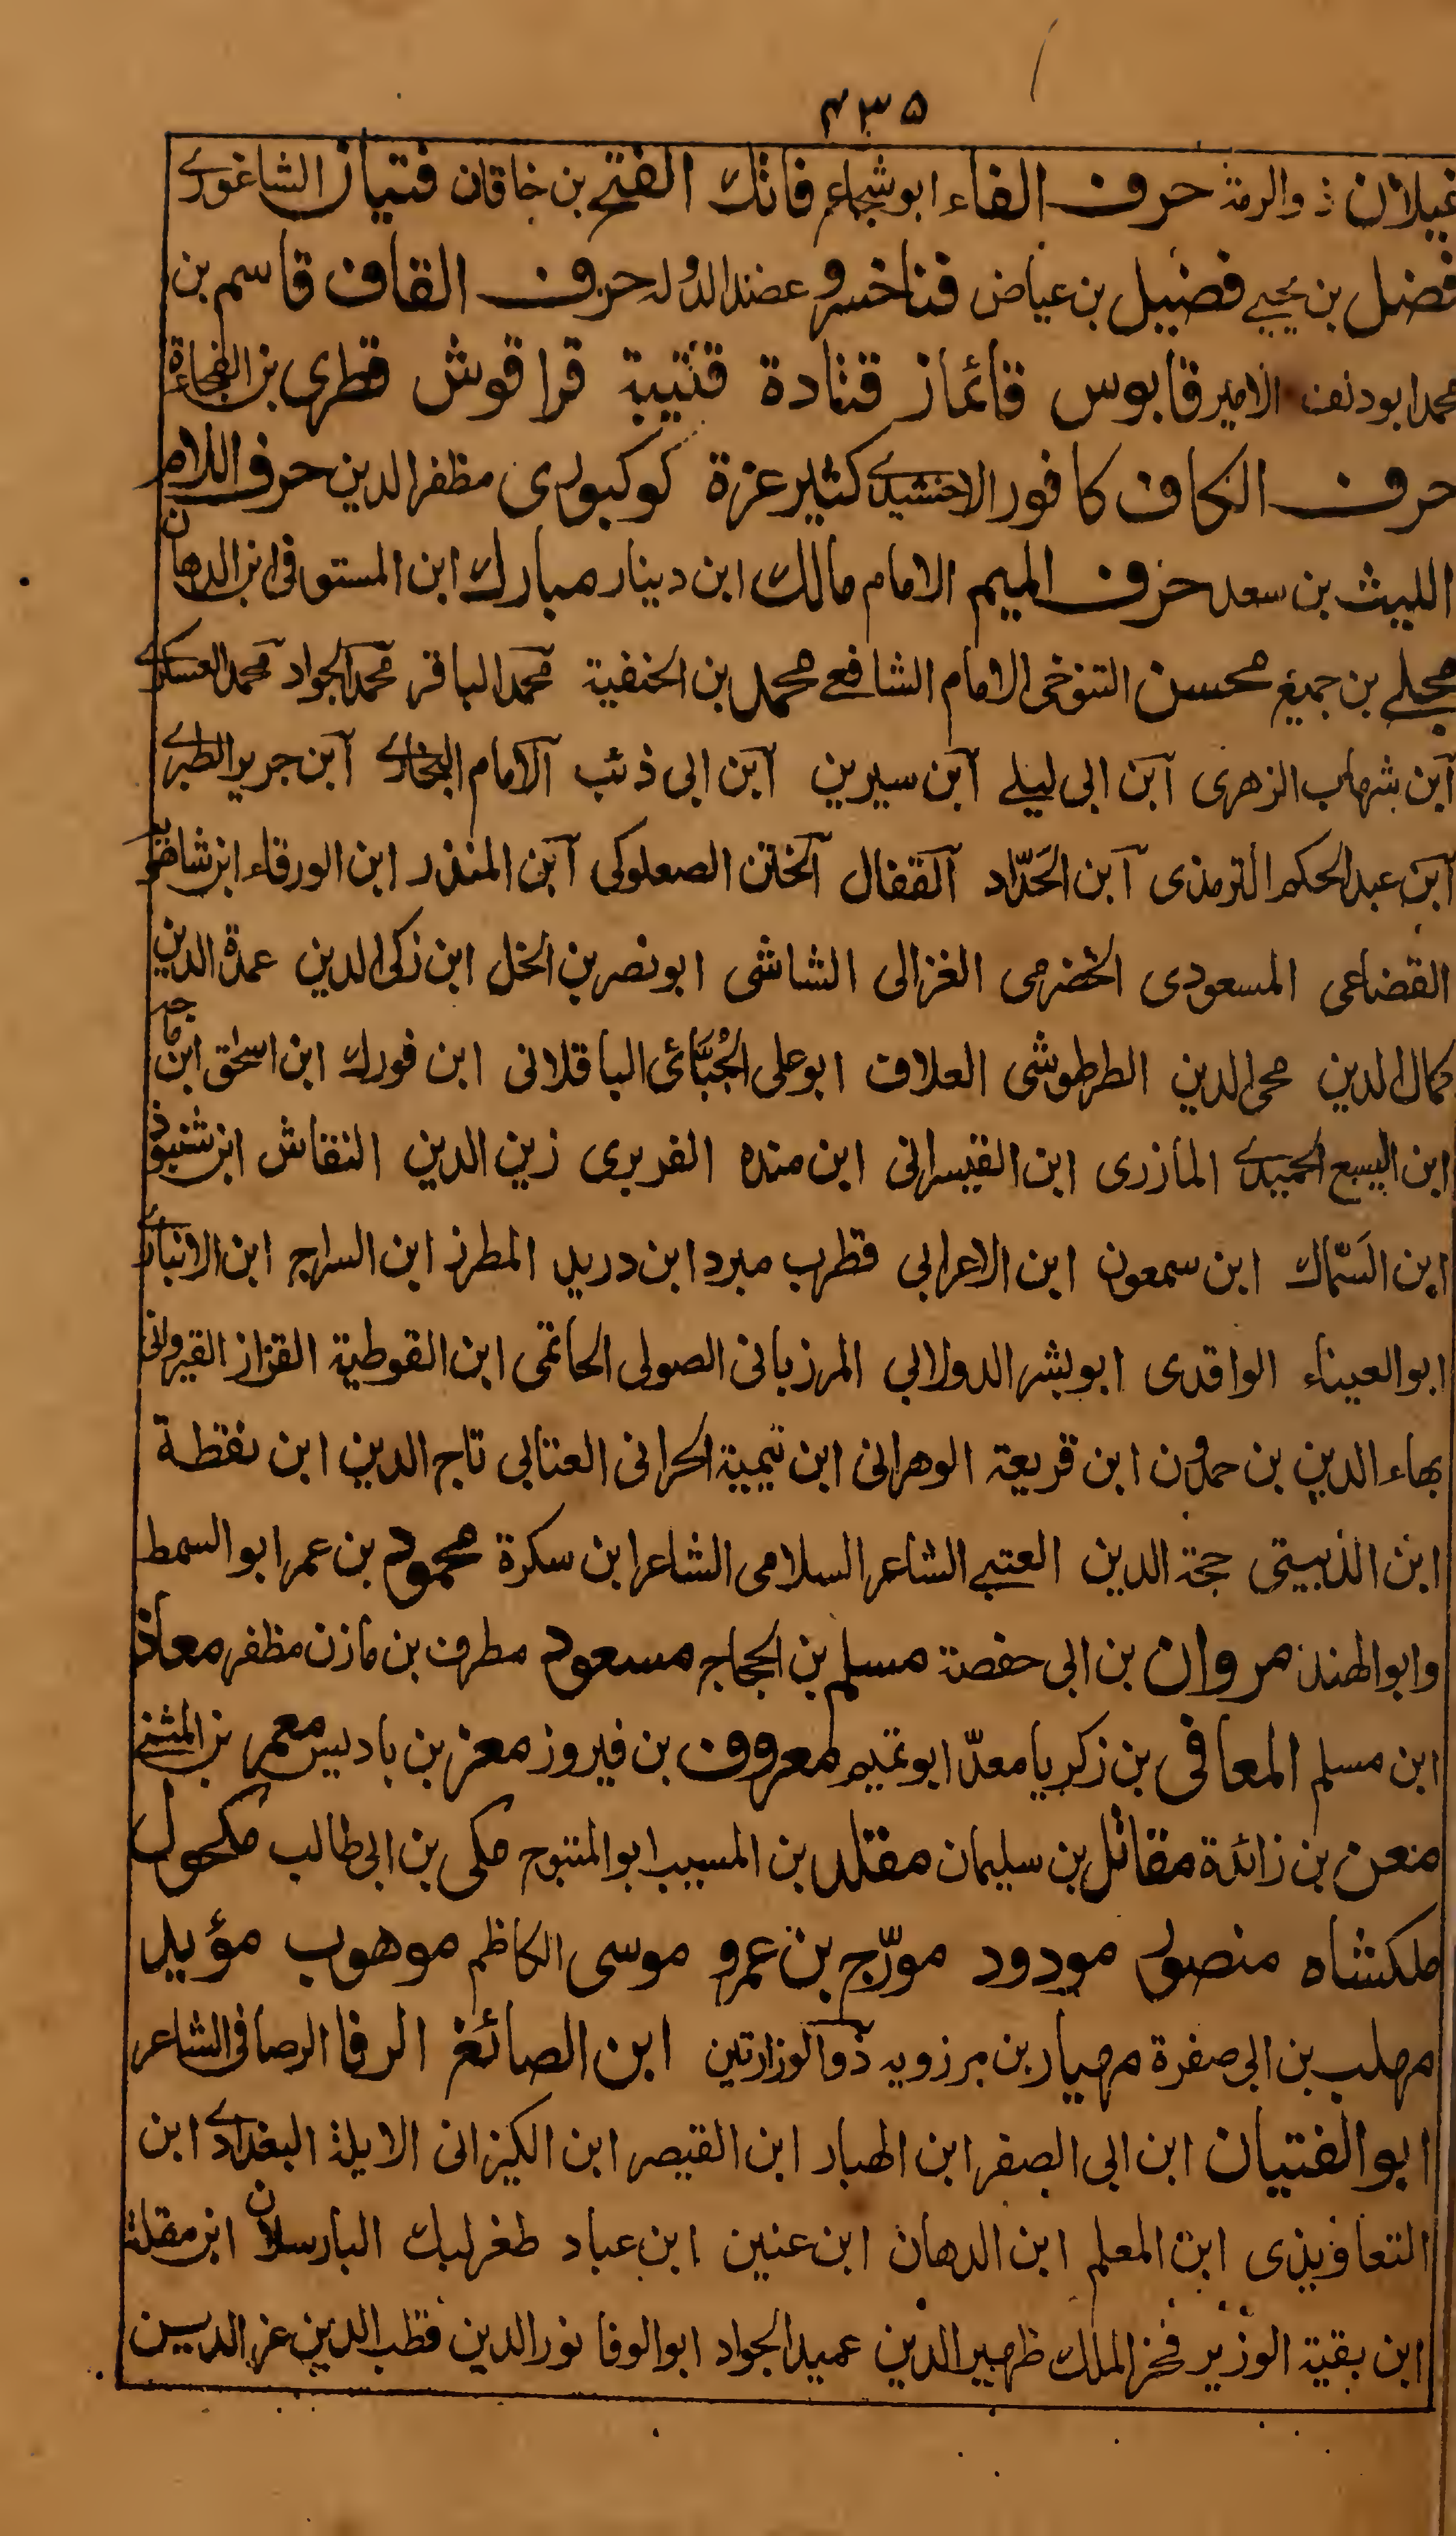 ۴۳۵
غيلان ذوالرمة حرف الفاء ابوشجاع فاتك الفتح بن خاقان فتيان الشاغوري
فضل بن يحيى فضيل بن عياض فناخسرو عضدالدوله حرف القاف قاسم بن
محمد ابودلف الامير قابوس قائماز قتادة قتيبة قراقوش قطرى بن الفجاءة
حرف الكاف كافور الاخشيدي كثير عزة كوكبورى مظفرالدين حرف اللام
الليث بن سعد حرف الميم الامام مالك ابن دينار مبارك ابن المستوفى ابن الدهان
مجلي بن جميع محسن التنوخى الامام الشافعي محمد بن الحنفية محمد الباقر محمد الجواد محمد العسكري
ابن شهاب الزهرى ابن ابى ليلى ابن سيرين ابن ابى ذئب الامام البخاري ابن جرير الطبري
ابن عبدالحكم الترمذى ابن الحَدّاد القفال الختن الصعلوكى ابن المنذر ابن الورقاء ابن شاهويه
القضاعى المسعودى الخضرمى الغزالى الشاشى ابونصر بن الخل ابن زكى الدين عمدة الدين
كمال الدين محى الدين الطرطوشى العلاف ابوعلى الجُبّائى الباقلانى ابن فورك ابن اسحق ابن ماجه
ابن اليسع الحميدي المازرى ابن القيسرانى ابن منده الفربرى زين الدين النقاش ابن شنبوذ
ابن السَّمّاك ابن سمعون ابن الاعرابى قطرب مبرد ابن دريد المطرز ابن السراج ابن الانباري
ابوالعيناء الواقدى ابوبشر الدولابى المرزبانى الصولى الحاتمى ابن القوطية القزاز القيروانى
بهاء الدين بن حمدون ابن قريعة الوهرانى ابن تيمية الحرانى العتابى تاج الدين ابن نقطة
ابن الذبيتى حجة الدين العتبي الشاعر السلامى الشاعر ابن سكرة محمود بن عمر ابوالسمط
وابوالهندز مروان بن ابى حفصة مسلم بن الحجاج مسعود مطرف بن مازن مظفر معاذ
ابن مسلم المعافى بن زكريا معدّ ابوتميم معروف بن فيروز معز بن باديس معمر بن المثنى
معن بن زائدة مقاتل بن سليمان مقلد بن المسيب ابوالمتوج مكى بن ابى طالب مكحول
ملكشاه منصور مودود مورّج بن عمرو موسى الكاظم موهوب مؤيد
مهلب بن ابى صفرة مهيار بن مرزويه ذوالوزارتين ابن الصائغ الرفا الرصافى الشاعر
ابوالفتيان ابن ابى الصقر ابن الهبار ابن القيصر ابن الكيزانى الابله البغدادي ابن
التعاويذى ابن المعلم ابن الدهان ابن عنين ابن عباد طغرلبك البارسلان ابن مقلة
ابن بقية الوزير فخرالملك ظهيرالدين عميد الجواد ابوالوفا نورالدين قطب الدين عزالدين